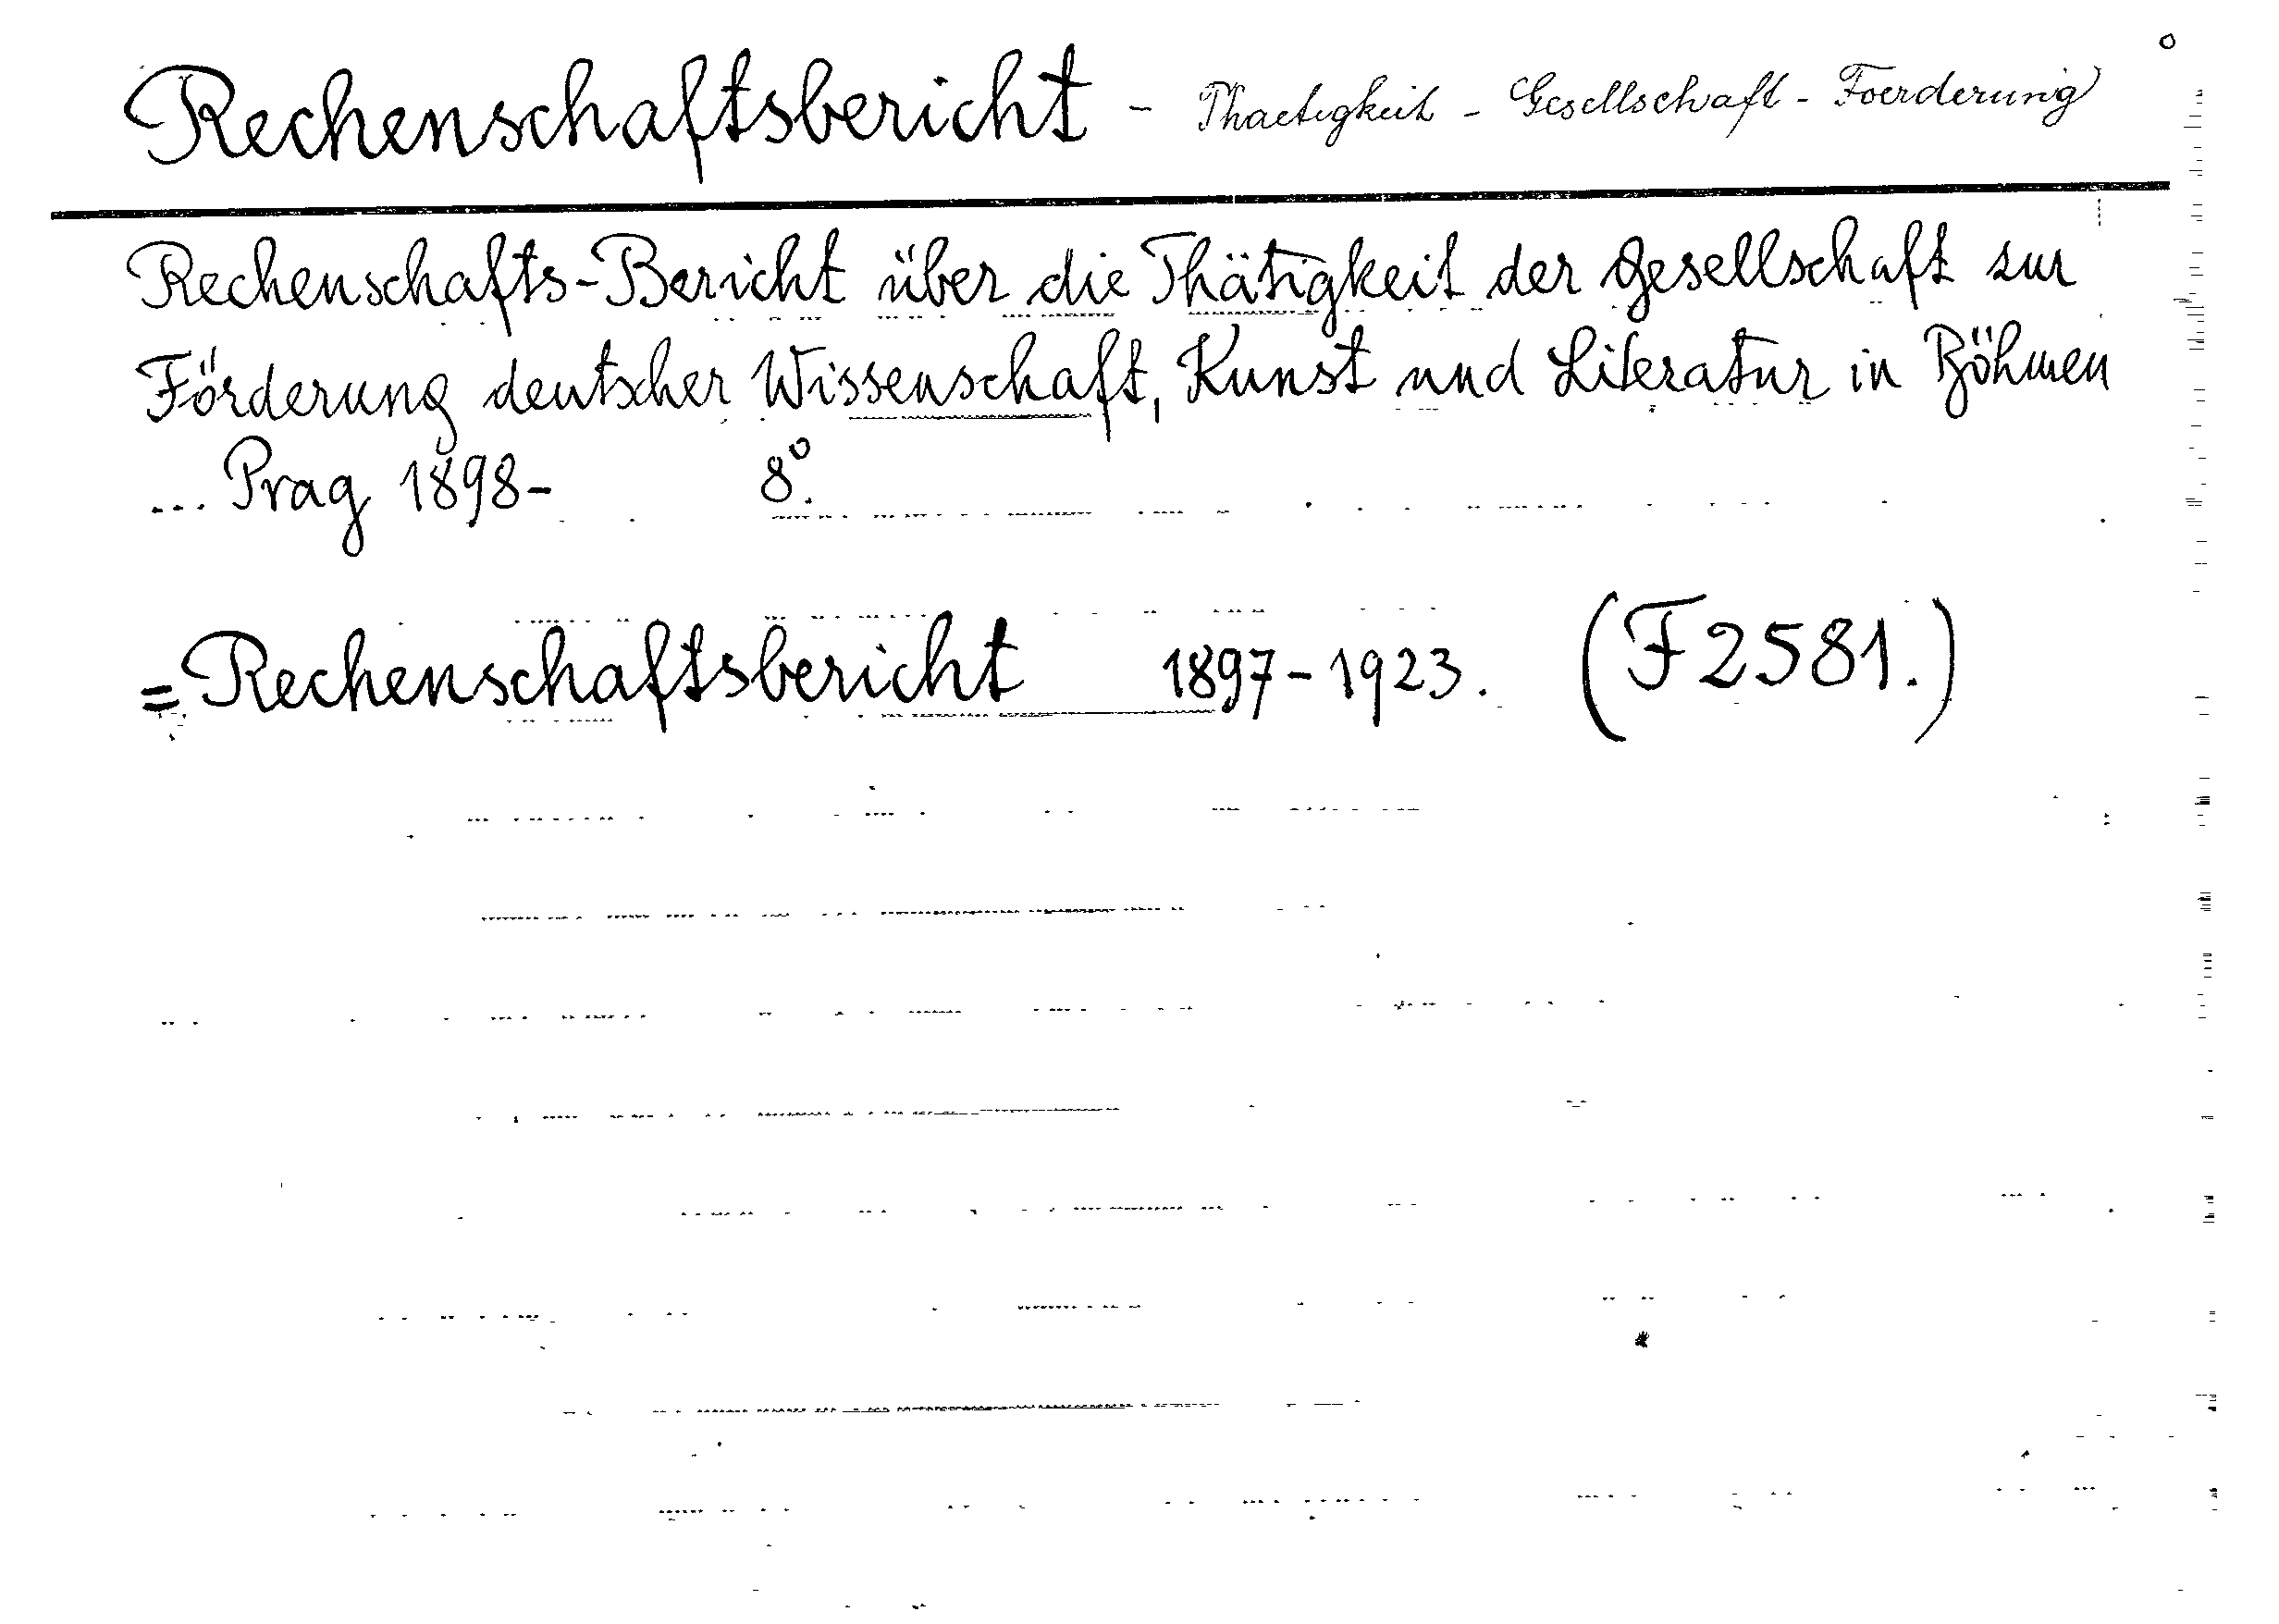 Rechenschaftsbericht - Thaetigkeit - Gesellschaft - Foerderung
Rechenschafts-Bericht über die Thätigkeit der Gesellschaft zur
Förderung deutscher Wissenschaft, Kunst und Literatur in Böhmen
... Prag 1898- 8°.
= Rechenschaftsbericht 1897-1923. (F 2581.)